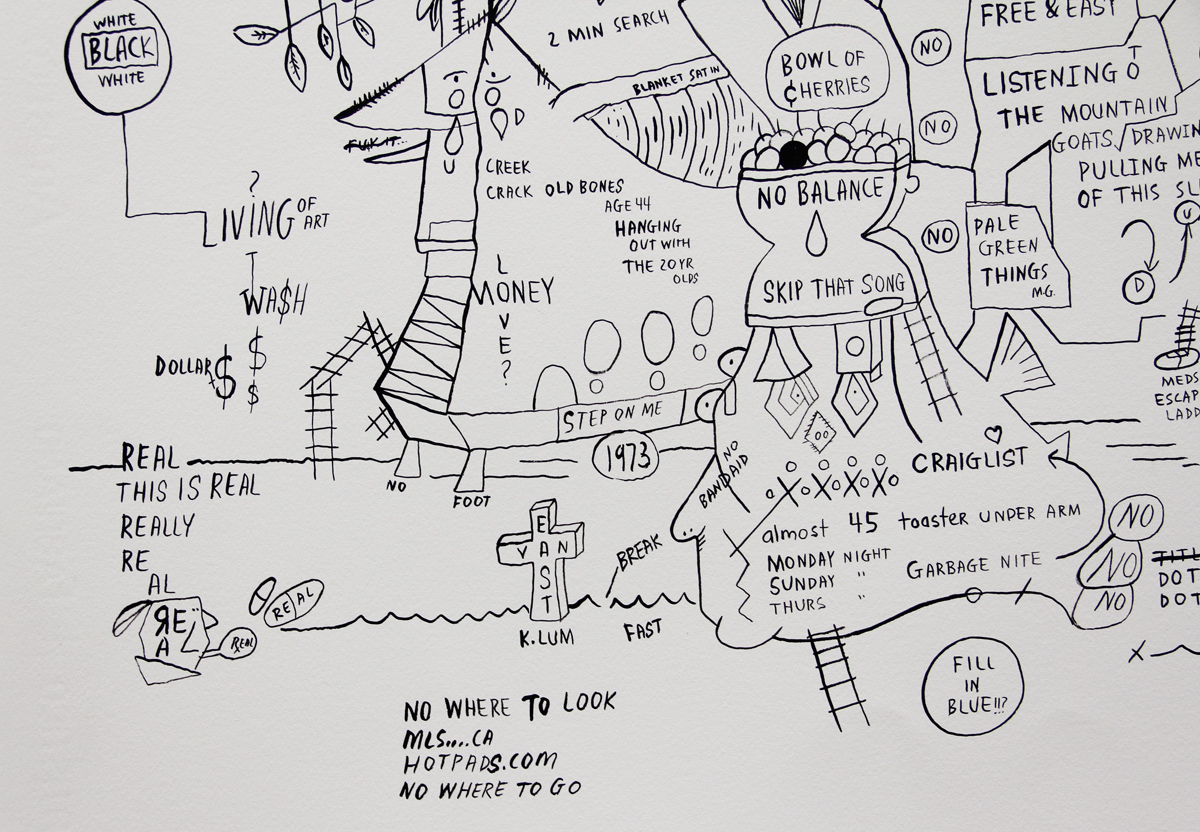 WHITE
BLACK
WHITE
2 MIN SEARCH
BLANKET SATIN
BOWL OF
¢HERRIES
NO
FREE & EASY
LISTENING TO
THE MOUNTAIN
GOATS √ DRAWIN
PULLING ME
OF THIS SL
NO
FUK IT...
D
U
CREEK
CRACK OLD BONES
AGE 44
HANGING
OUT WITH
THE 20 YR
OLDS
NO BALANCE
?
LIVING OF
ART
IT
WA$H
DOLLAR $
$
$
LOVE?
MONEY
SKIP THAT SONG
NO
PALE
GREEN
THINGS
M.G.
U
D
MEDS
ESCAP
LADD
STEP ON ME
1973
NO
FOOT
NO
BANDAID
CRAIGLIST
XOXOXOXO
almost 45 toaster UNDER ARM
MONDAY NIGHT
SUNDAY "
THURS "
GARBAGE NITE
NO
NO
NO
TITL
DOT
DOT
REAL
THIS IS REAL
REALLY
RE
AL
REAL
REAL
REAL
EAST
VAN
K.LUM
BREAK
FAST
X
FILL
IN
BLUE!!!?
NO WHERE TO LOOK
MLS....CA
HOTPADS.COM
NO WHERE TO GO